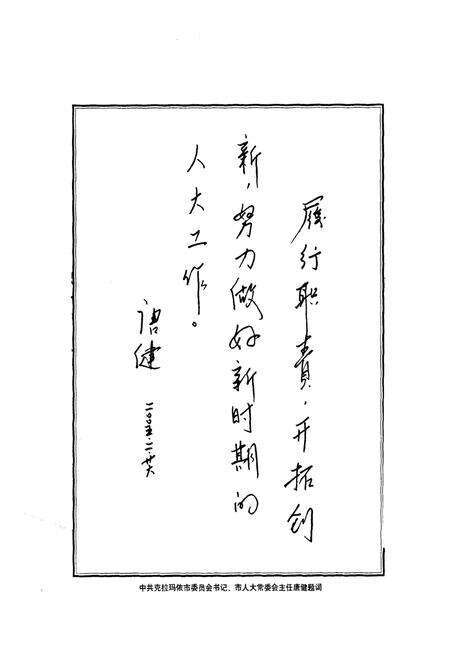 履行职责，开拓创
新，努力做好新时期的
人大工作。
唐健
二〇〇五.二.廿八
中共克拉玛依市委员会书记、市人大常委会主任唐健题词